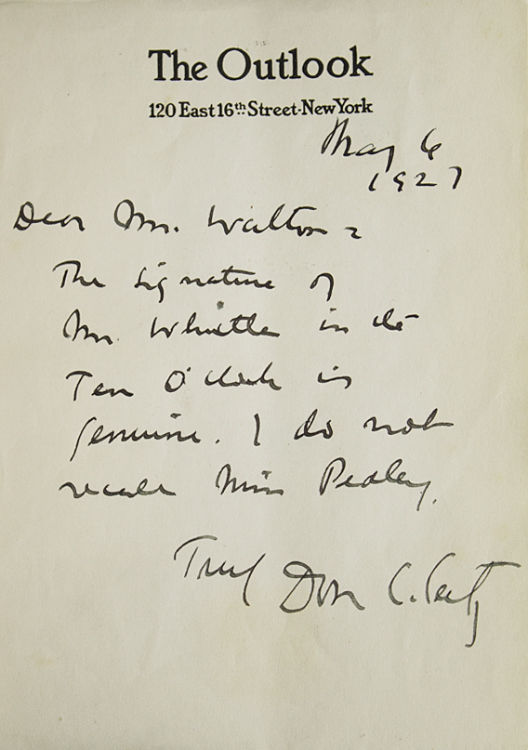 The Outlook
120 East 16th Street-New York
May 6
1927
Dear Mr. Walton -
The signature of
Mr. Whistler in the
Ten O'Clock is
genuine. I do not
recall Miss Pedley.
Truly Don C. Seitz